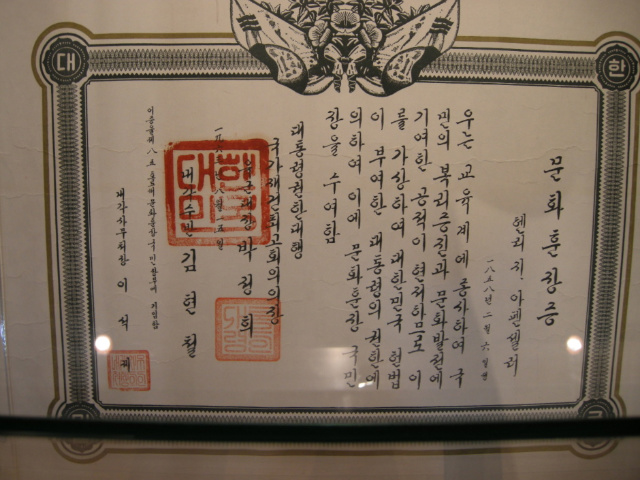 대
한
문화훈장증
헨리 지. 아펜젤러
一八五八년 二월 六일생
우는 교육계에 종사하여 국
민의 복리증진과 문화발전에
기여한 공적이 현저하므로 이
를 가상하여 대한민국 헌법
이 부여한 대통령의 권한에
의하여 이에 문화훈장 국민
장을 수여함
대통령권한대행
국가재건최고회의의장
육군대장 박정희
월 五일
내각수반 김현철
이증을제八호로 문화훈장 국민장부에 기입함
내각사무처장 이석제